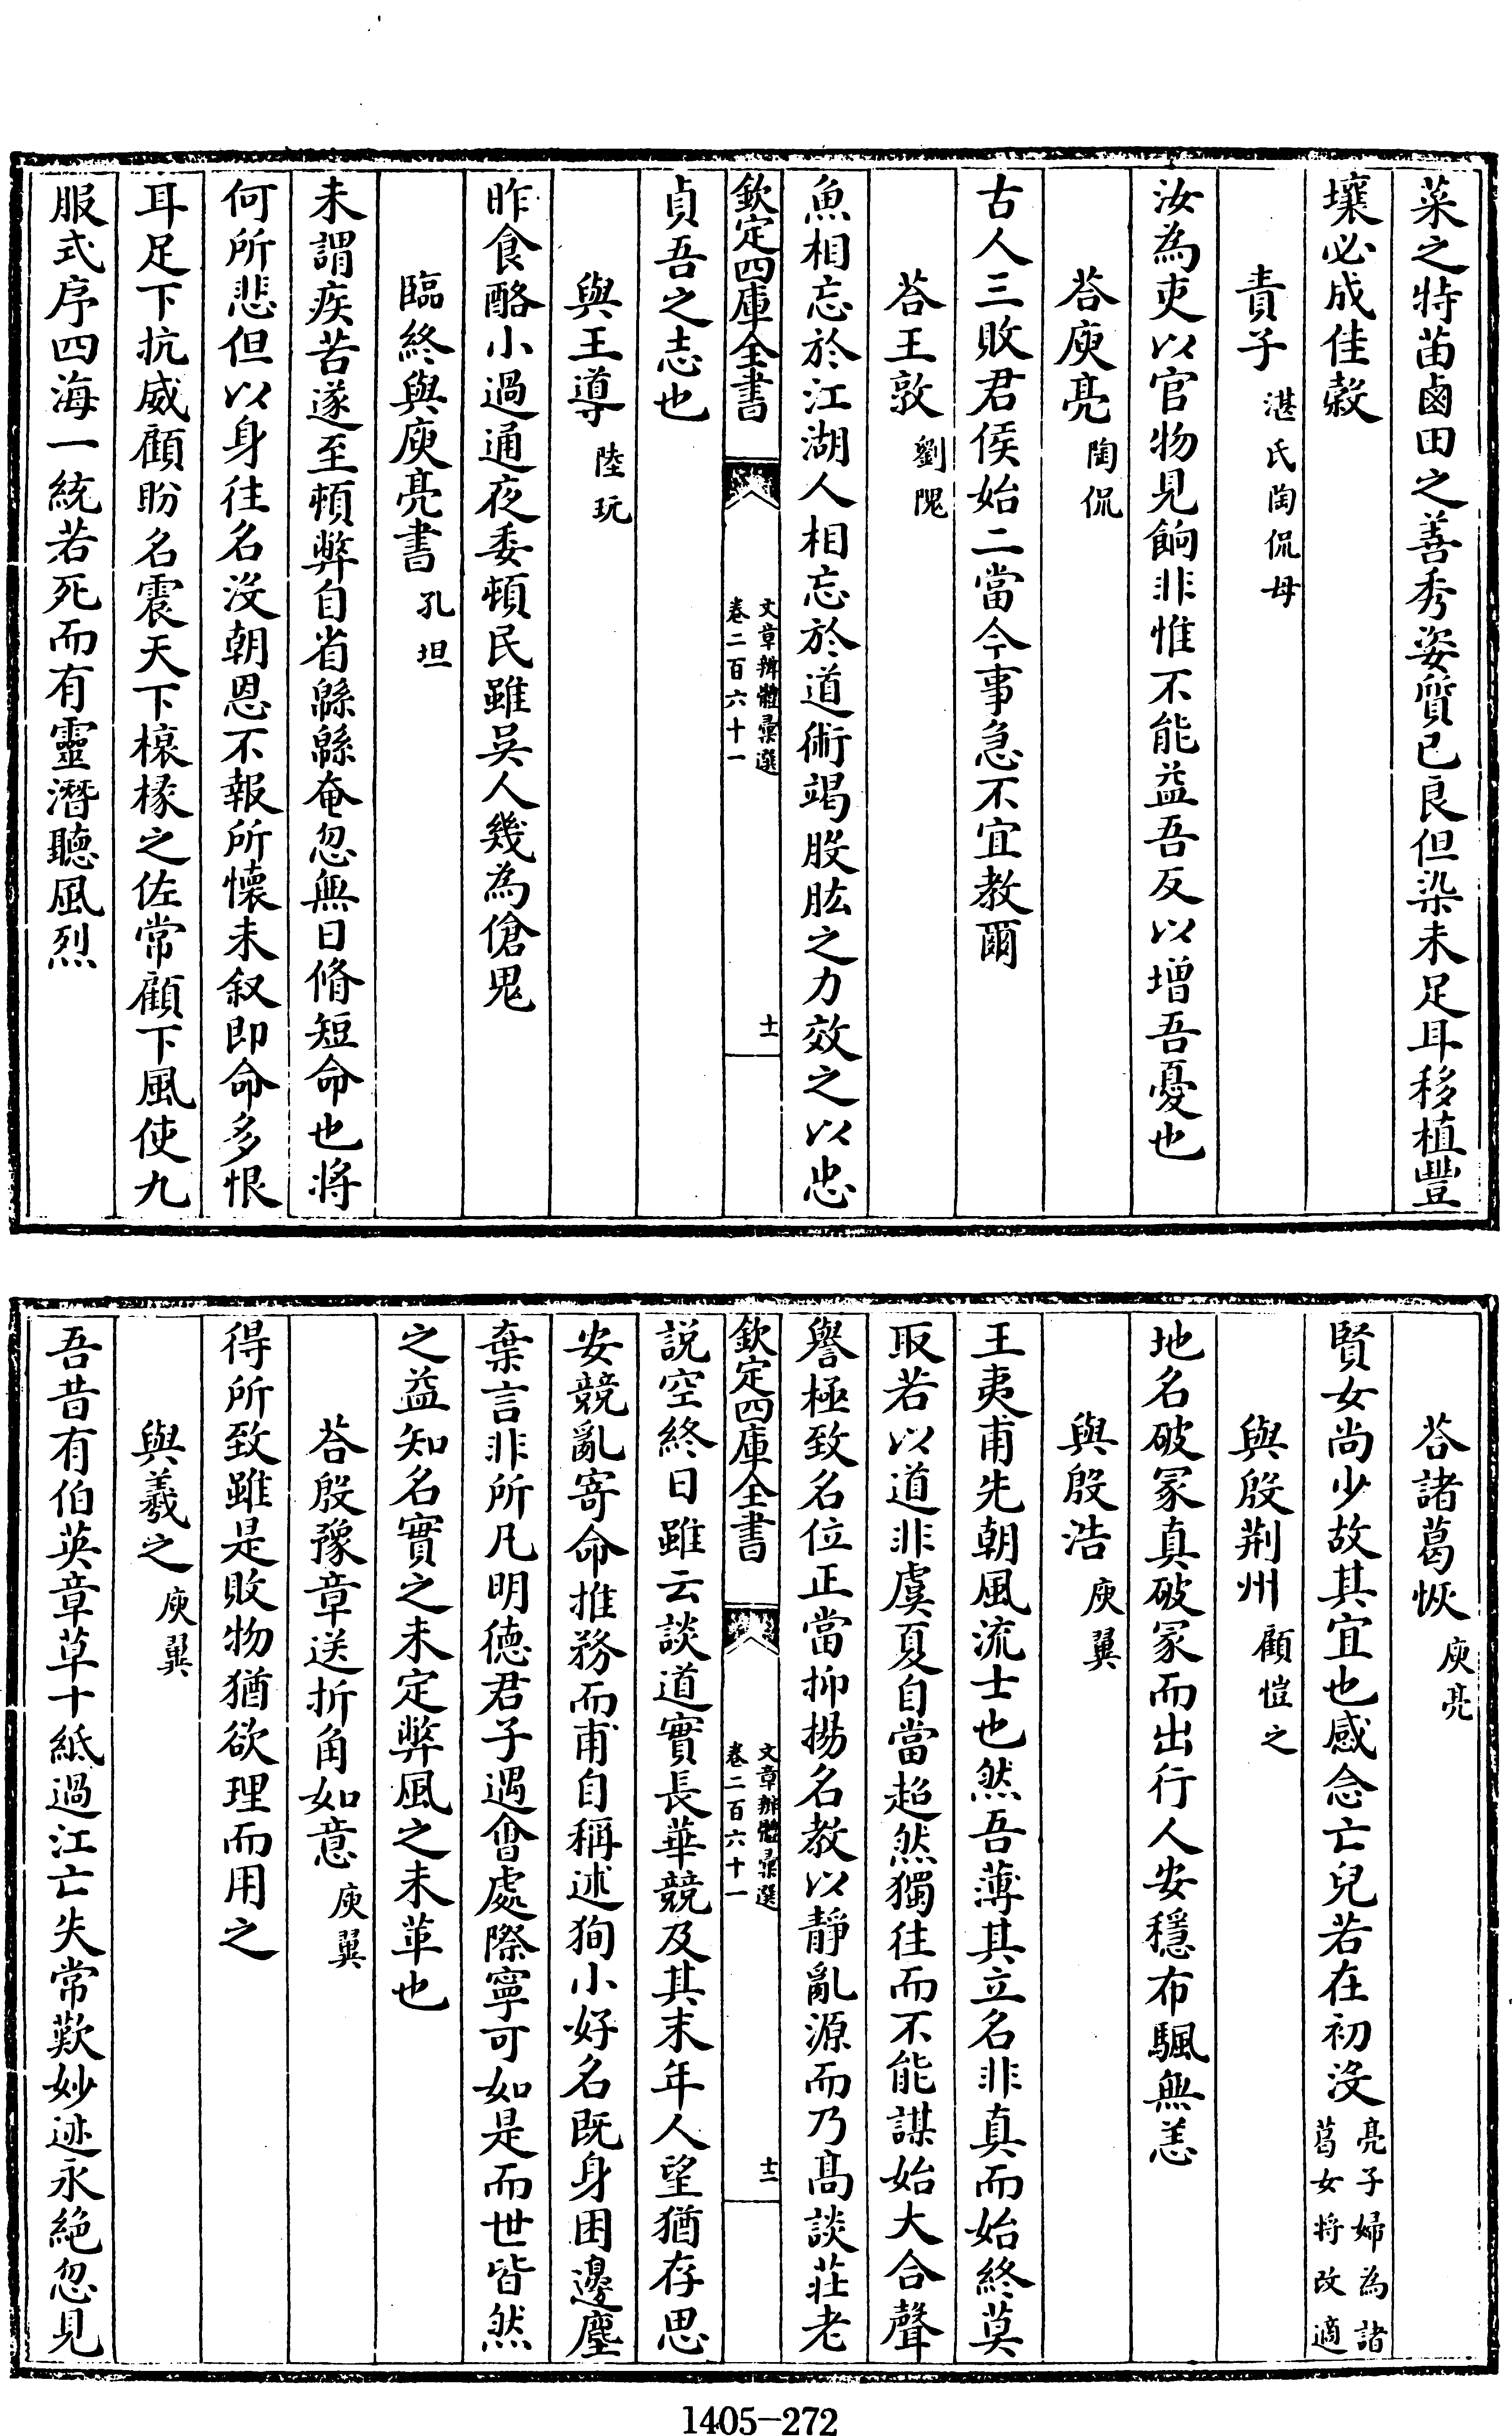 菜之特苗鹵田之善秀姿質已良但染未足耳移植豐
壤必成佳穀
責子 湛氏陶侃母
汝為吏以官物見餉非惟不能益吾反以增吾憂也
荅庾亮 陶侃
古人三敗君侯始二當今事急不宜教爾
荅王敦 劉隗
魚相忘於江湖人相忘於道術竭股肱之力效之以忠
欽定四庫全書
文章辨體彙選
卷二百六十一
十一
貞吾之志也
與王導 陸玩
昨食酪小過通夜委頓民雖吳人幾為傖鬼
臨終與庾亮書 孔坦
未謂疾苦遂至頓弊自省緜緜奄忽無日脩短命也將
何所悲但以身往名没朝恩不報所懷未叙即命多恨
耳足下抗威顧盼名震天下榱椽之佐常顧下風使九
服式序四海一統若死而有靈潛聽風烈
荅諸葛恢 庾亮
賢女尚少故其宜也感念亡兒若在初没 亮子婦為諸
葛女将改適
與殷荆州 顧愷之
地名破冢真破冢而出行人安穩布颿無恙
與殷浩 庾翼
王夷甫先朝風流士也然吾薄其立名非真而始終莫
取若以道非虞夏自當超然獨往而不能謀始大合聲
譽極致名位正當抑揚名教以靜亂源而乃髙談莊老
欽定四庫全書
文章辨體彙選
卷二百六十一
十二
説空終日雖云談道實長華競及其末年人望猶存思
安競亂寄命推務而甫自稱述狥小好名既身困邊塵
棄言非所凡明徳君子遇會處際寧可如是而世皆然
之益知名實之未定弊風之未革也
荅殷豫章送折角如意 庾翼
得所致雖是敗物猶欲理而用之
與羲之 庾翼
吾昔有伯英章草十紙過江亡失常歎妙迹永絶忽見
1405-272